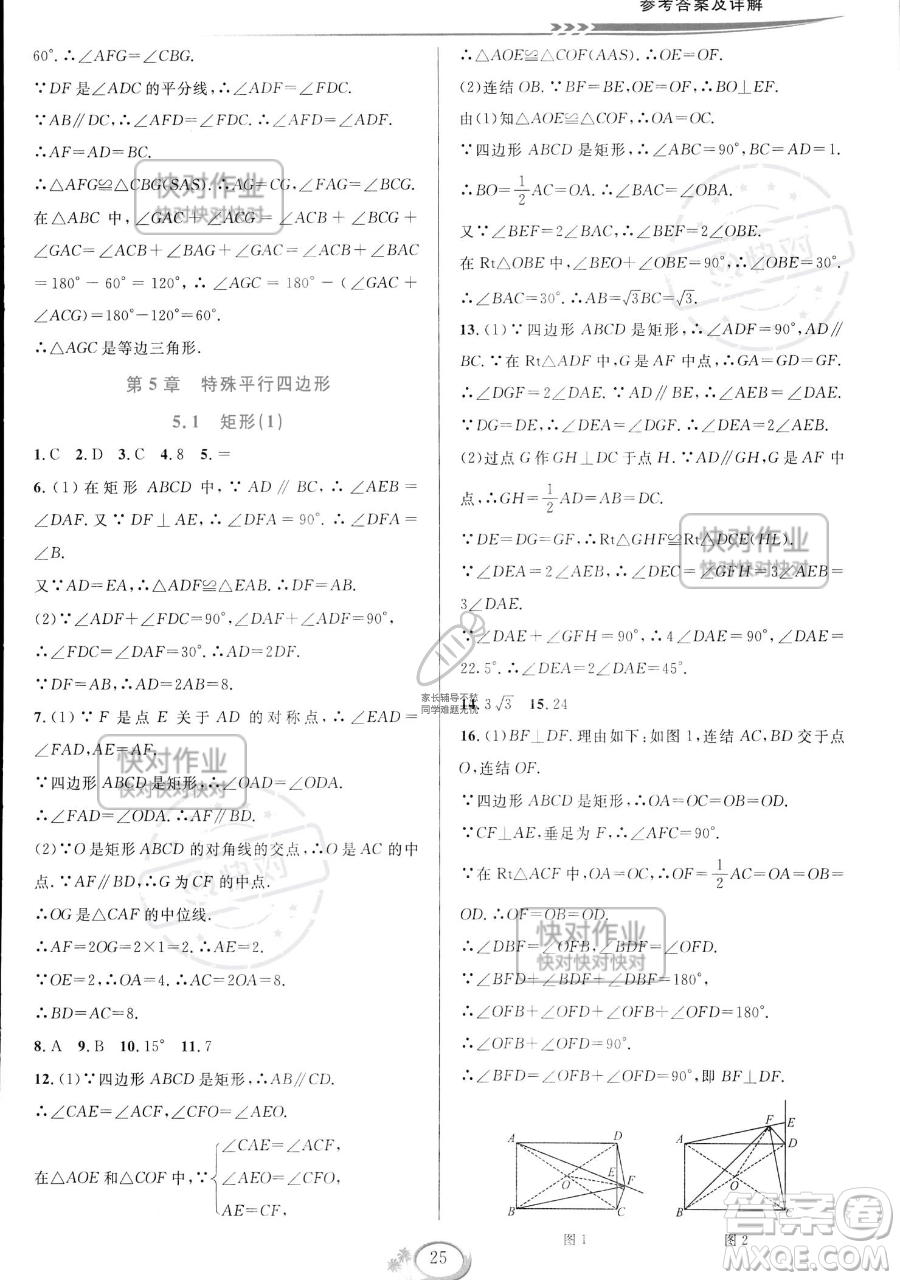 参考答案及详解
60°.∴∠AFG=∠CBG.
∵DF是∠ADC的平分线,∴∠ADF=∠FDC.
∵AB∥DC,∴∠AFD=∠FDC.∴∠ADF=∠AFD.
∴AF=AD=BC.
∴△AFG≌△CBG(SAS).∴AG=CG,∠FAG=∠BCG.
在△ABC中,∠GAC+∠ACB+∠BCG+
∠GAC=∠ACB+∠BAG+∠GAC=∠ACB+∠BAC
=180°-60°=120°,∴∠AGC=180°-(∠GAC+
∠ACG)=180°-120°=60°.
∴△AGC是等边三角形.
第5章 特殊平行四边形
5.1 矩形(1)
1.C 2.D 3.C 4.8 5.=
6.(1)在矩形ABCD中,∵AD∥BC,∴∠AEB=
∠DAF.又∵DF⊥AE,∴∠DFA=90°.∴∠DFA=
∠B.
又∵AD=EA,∴△ADF≌△EAB.∴DF=AB.
(2)∵∠ADF+∠FDC=90°,∠DAF+∠ADF=90°,
∴∠FDC=∠DAF=30°.∴AD=2DF.
∵DF=AB,∴AD=2AB=8.
7.(1)∵F是点E关于AD的对称点,∴∠EAD=
∠FAD,AE=AF.
∵四边形ABCD是矩形,∴∠OAD=∠ODA.
∴∠FAD=∠ODA.∴AF∥BD.
(2)∵O是矩形ABCD的对角线的交点,∴O是AC的中
点.∵AF∥BD,∴G为CF的中点.
∴OG是△CAF的中位线.
∴AF=2OG=2×1=2.∴AE=2.
∵OE=2,∴OA=4.∴AC=2OA=8.
∴BD=AC=8.
8.A 9.B 10.15° 11.7
12.(1)∵四边形ABCD是矩形,∴AB∥CD.
∴∠CAE=∠ACF,∠CFO=∠AEO.
在△AOE和△COF中,∵
∠CAE=∠ACF,
∠AEO=∠CFO,
AE=CF,
∴△AOE≌△COF(AAS).∴OE=OF.
(2)连结OB.∵BF=BE,OE=OF,∴BO⊥EF.
由(1)知△AOE≌△COF,∴OA=OC.
∵四边形ABCD是矩形,∴∠ABC=90°,BC=AD=1.
∴BO=1/2AC=OA.∴∠BAC=∠OBA.
又∵∠BEF=2∠BAC,∴∠BEF=2∠OBE.
在Rt△OBE中,∠BEO+∠OBE=90°,∴∠OBE=30°.
∴∠BAC=30°.∴AB=√3BC=√3.
13.(1)∵四边形ABCD是矩形,∴∠ADF=90°,AD∥
BC.∵在Rt△ADF中,G是AF中点,∴AG=DG=GF.
∴∠DGF=2∠DAG.∵AD∥BE,∴∠DAG=∠DEA.
∵DG=DE,∴∠DGF=∠DEG.∴∠DEA=2∠AEB.
(2)过点G作GH⊥DC于点H.∵AD∥GH,G是AF中
点,∴GH=1/2AD=AB=DC.
∵DE=DG=GF,∴Rt△GHF≌Rt△DCE(HL).
∵∠DEA=2∠AEB,∴∠DEC=∠GFH=3∠AEB=
3∠DAE.
∵∠DAE+∠GFH=90°,∴∠DAE+3∠DAE=90°.∴∠DAE=
22.5°.∴∠DEA=2∠DAE=45°.
14.3√3 15.24
16.(1)BF⊥DF.理由如下:如图1,连结AC,BD交于点
O,连结OF.
∵四边形ABCD是矩形,∴OA=OC=OB=OD.
∵CF⊥AE,垂足为F,∴∠AFC=90°.
∵在Rt△ACF中,∠AFC=90°,∴OF=1/2AC=OA=OC=OB=
OD.∴OF=OB=OD.
∴∠DBF=∠OFB,∠BDF=∠OFD.
∵∠BFD+∠BDF+∠DBF=180°,
∴∠OFB+∠OFD+∠OFB+∠OFD=180°.
∴∠OFB+∠OFD=90°.
∴∠BFD=∠OFB+∠OFD=90°,即BF⊥DF.
A D B C O E F
图1
A D B C O E F
图2
25
快对作业
快对快对快对
家长辅导不愁
同学难题无忧
答案圈
MXQE.COM